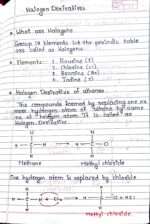 Halogen Derivatives
• What are Halogens
Group 17 elements in the periodic table
are called as Halogens
• Elements : 1. Flourine (F)
2. Chlorine (Cl)
3. Bromine (Br)
4. Iodine (I)
• Halogen Derivatives of alkanes
The compounds formed by replacing one or
more hydrogen atom of
no. of halogen atom it is called as
Halogen Derivative
H H
H C H → H C Cl
H H
Methane Methyl chloride
One hydrogen atom is replaced by chloride
H H
H C H + Cl → H C Cl + HCl
H H
methyl chloride